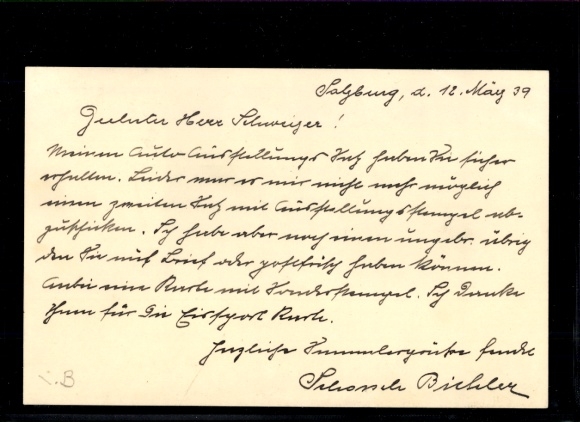 Salzburg, d. 12. März 39
Geehrter Herr Schweizer!
Meinen Auto Ausstellungs Satz haben Sie sicher
erhalten. Leider war es mir nicht mehr möglich
einen zweiten Satz mit Ausstellungsstempel ab-
zuschicken. Ich habe aber noch einen ungebr. übrig
den Sie auf Brief oder postfrisch haben können.
Anbei eine Karte mit Sonderstempel. Ich Danke
Ihnen für die Eissport Karte.
Herzliche Sammlergrüsse sendet
Bichler